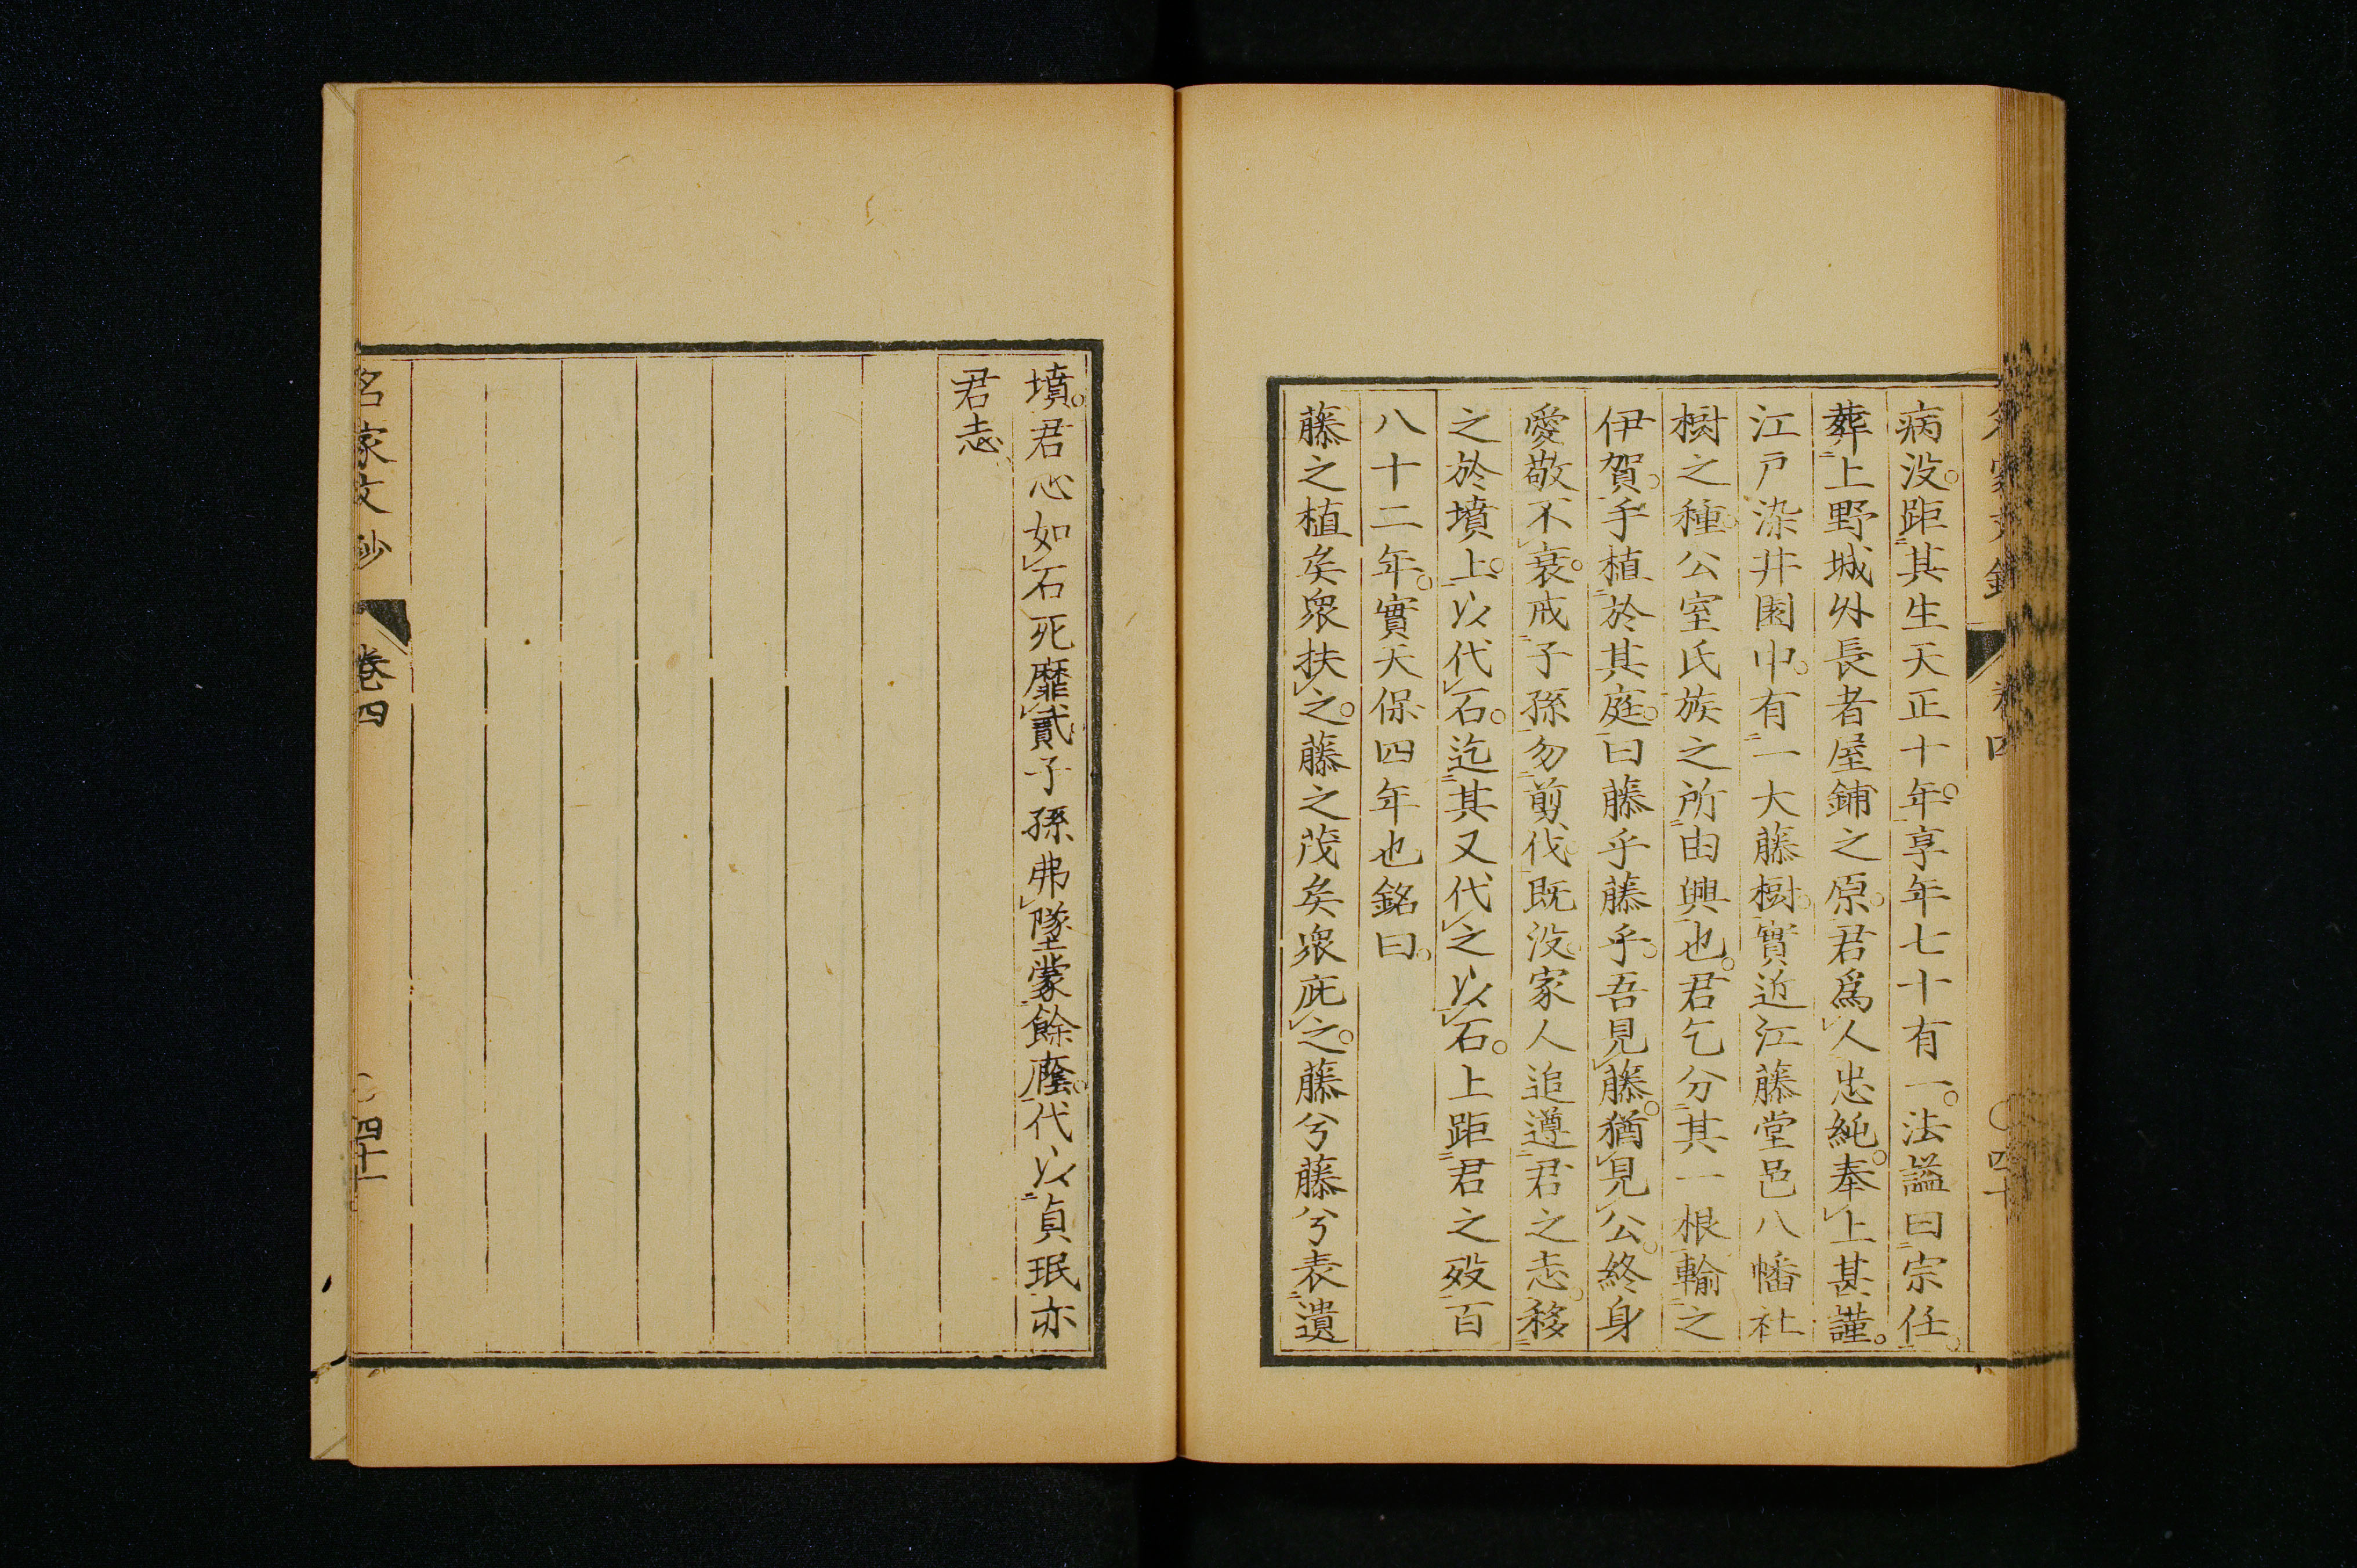 病没。距其生天正十年。享年七十有一。法諡曰宗任。
葬上野城外長者屋鋪之原。君爲人忠純。奉上甚謹。
江戸染井園中。有一大藤樹。實近江藤堂邑八幡社
樹之種。公室氏族之所由興也。君乞分其一根輸之
伊賀。手植於其庭。曰藤乎藤乎。吾見藤。猶見公。終身
愛敬不衰。戒子孫勿剪伐。既没。家人追遵君之志。移
之於墳上。以代石。迄其又代之以石。上距君之歿百
八十二年。實天保四年也銘曰。
藤之植矣衆扶之。藤之茂矣衆庇之。藤兮藤兮表遺
墳。君心如石死靡貳子孫弗墜蒙餘蔭。代以貞珉亦
君志。
名家文鈔 卷四 〇四十一